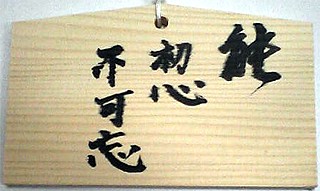 能
初心
不可忘